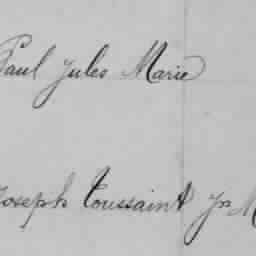 Paul Jules Marie
Joseph Toussaint Yn M